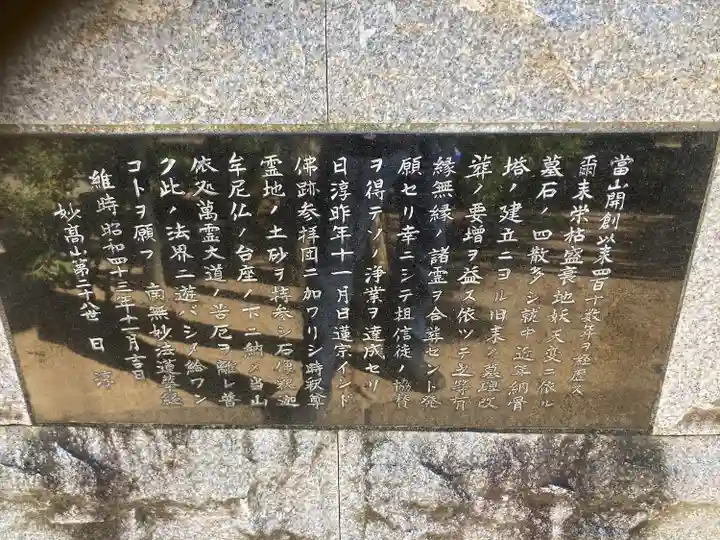 當山開創以来四百十数年ヲ経歴ス
爾来栄枯盛衰地妖天変ニ依ル
墓石ノ四散多シ就中近年納骨
塔ノ建立ニヨル旧来ノ墓碑改
葬ノ要増ヲ益ス依ツテ之等有
縁無縁ノ諸霊ヲ合葬セント発
願セリ幸ニシテ担信徒ノ協賛
ヲ得テソノ浄業ヲ達成セリ
日淳昨年十一月日蓮宗インド
佛跡参拝団ニ加ワリシ時釈尊
霊地ノ土砂ヲ持参シ石像釈迦
牟尼仏ノ台座ノ下ニ納メ当山
依処萬霊大道ノ苦厄ヲ離レ普
ク此ノ法界ニ遊バシメ給ワン
コトヲ願フ 南無妙法蓮華経
維時昭和四十三年十一月吉日
妙高山第二十八世 日淳